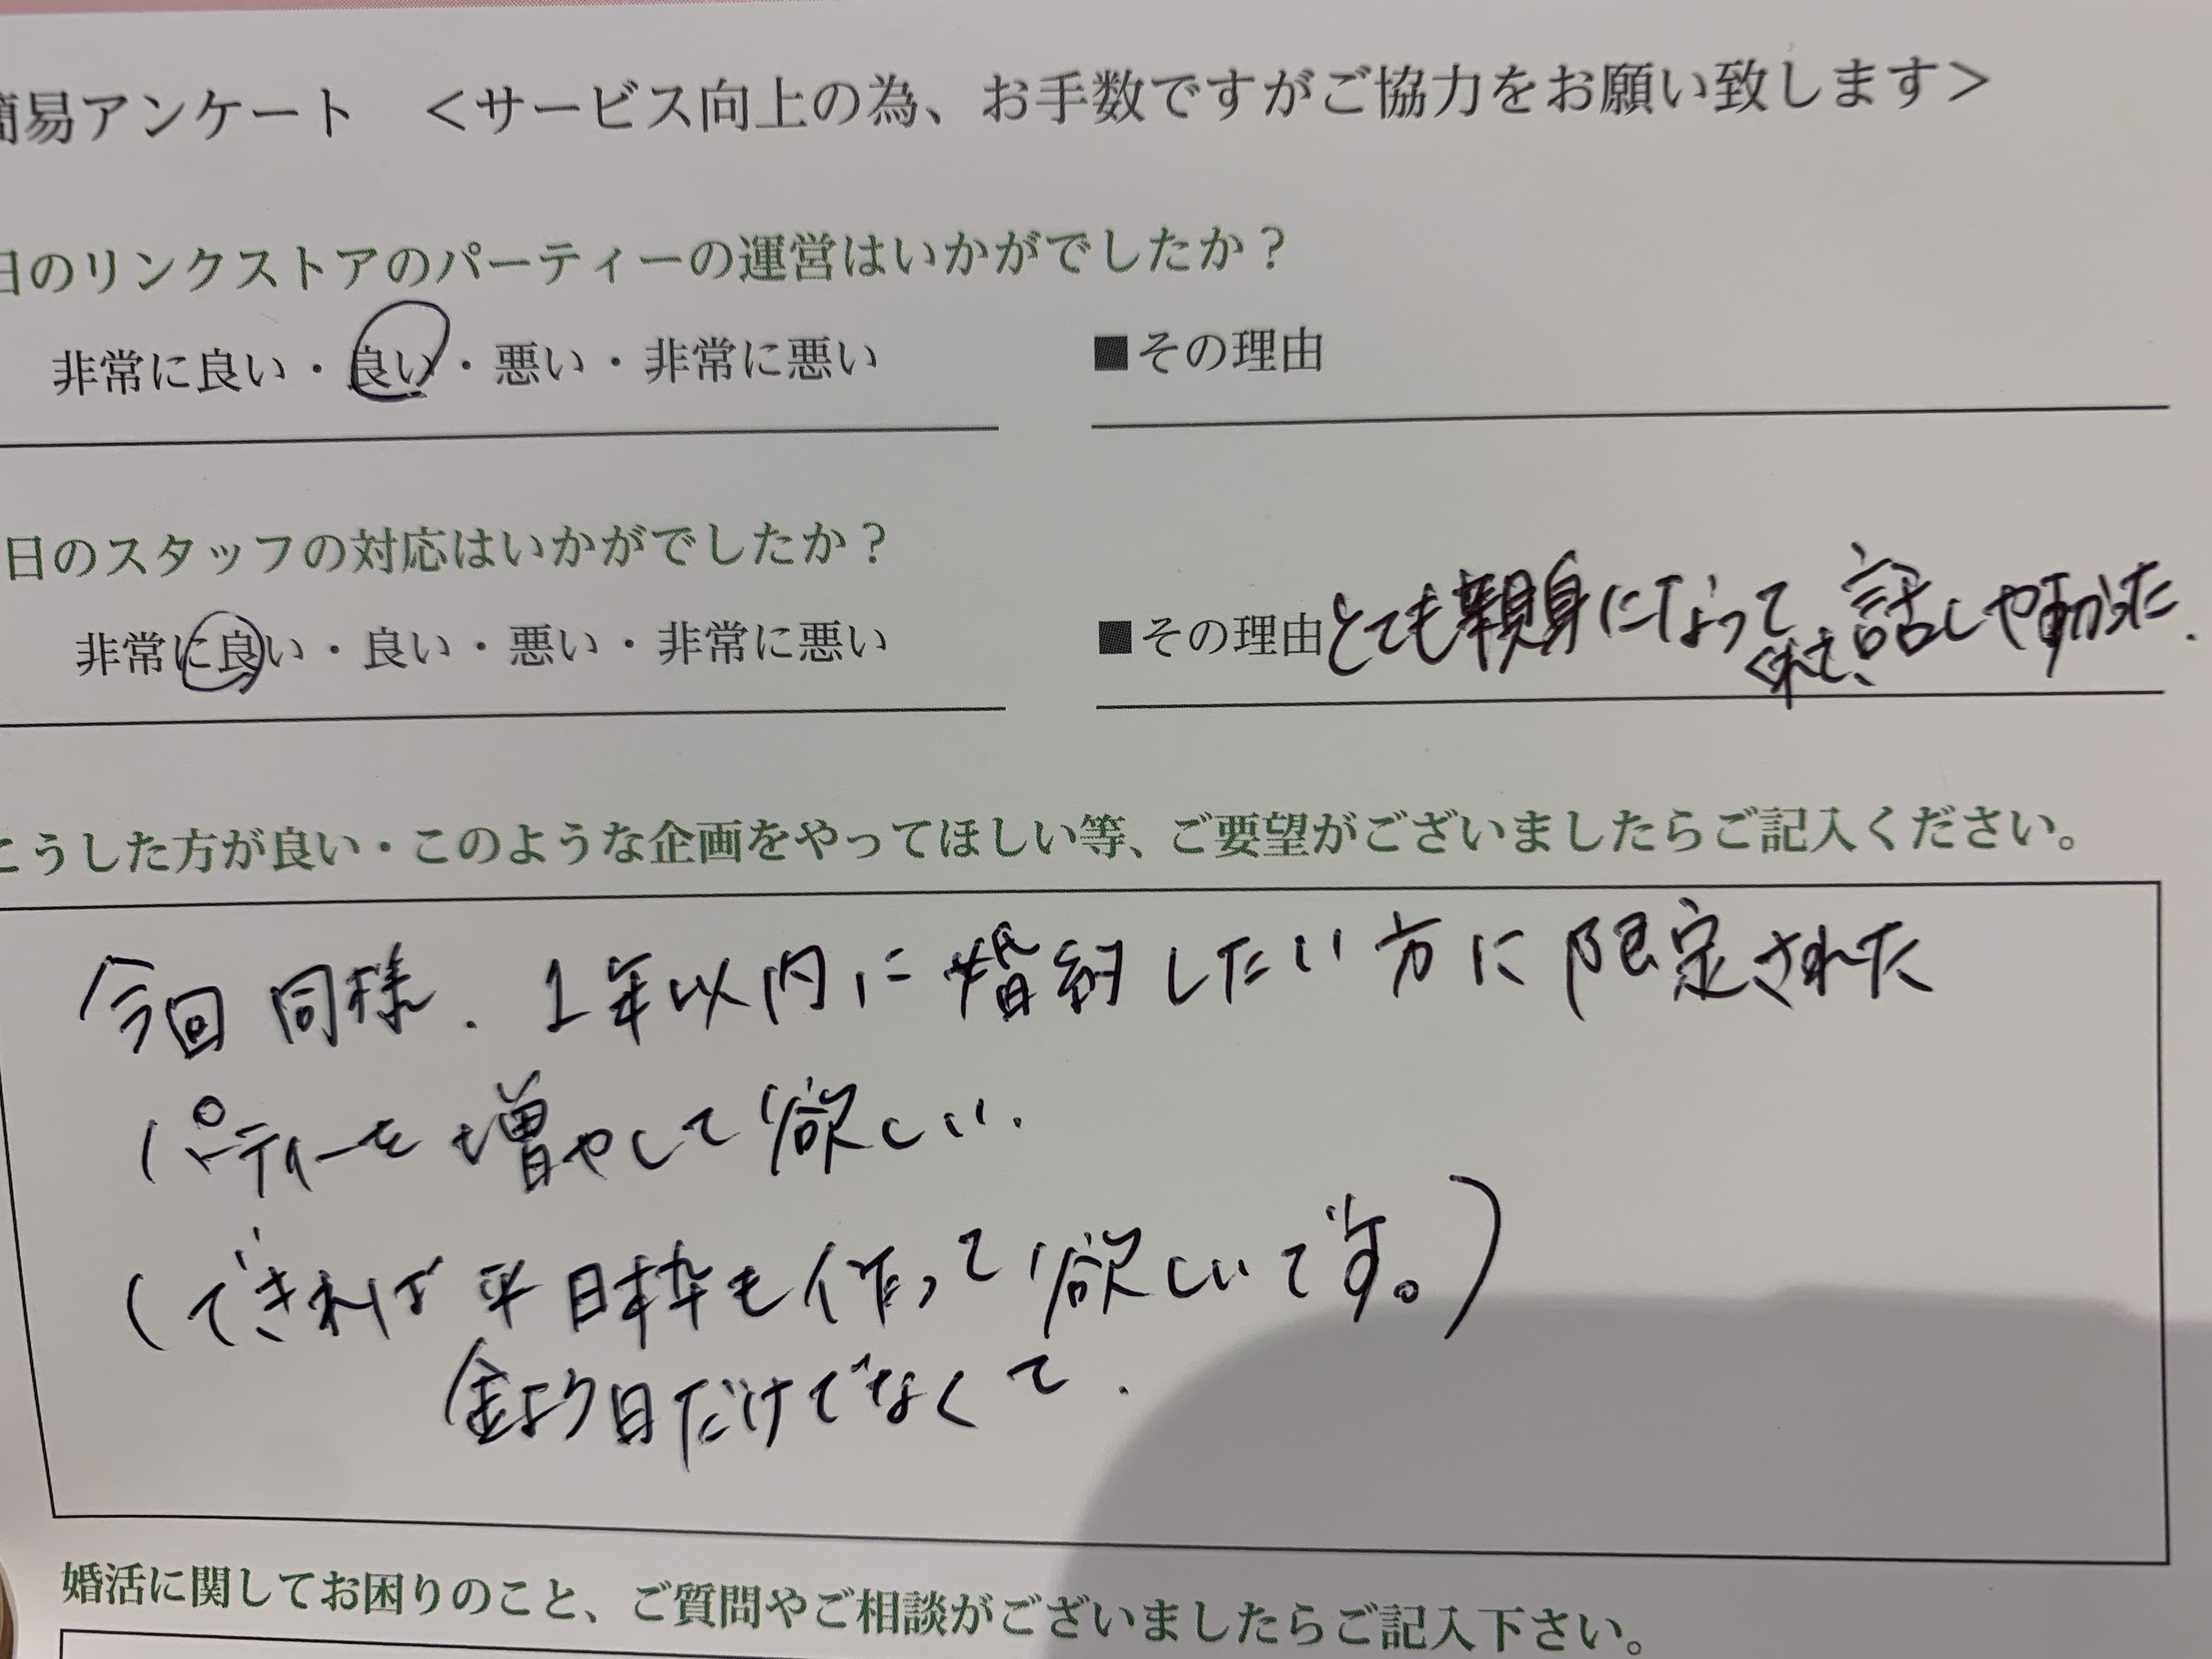 簡易アンケート ＜サービス向上の為、お手数ですがご協力をお願い致します＞
日のリンクストアのパーティーの運営はいかがでしたか？
非常に良い・良い・悪い・非常に悪い ■その理由
日のスタッフの対応はいかがでしたか？
非常に良い・良い・悪い・非常に悪い ■その理由 とても親身になってくれて、話しや助かった.
こうした方が良い・このような企画をやってほしい等、ご要望がございましたらご記入ください。
今回同様. 1年以内に婚約したい方に限定された
パーティーを増やして欲しい.
(できれば平日枠も作って欲しいです。)
金よう日だけでなくて.
婚活に関してお困りのこと、ご質問やご相談がございましたらご記入下さい。